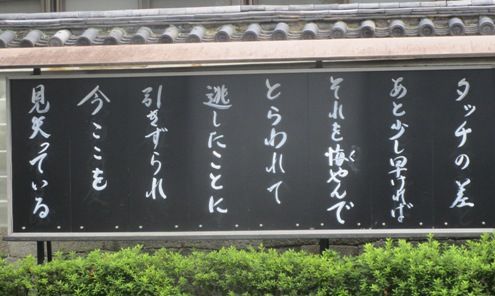 タッチの差
あと少し早ければ
それを悔やんで
とらわれて
逃したことに
引きずられ
今ここを
見失っている